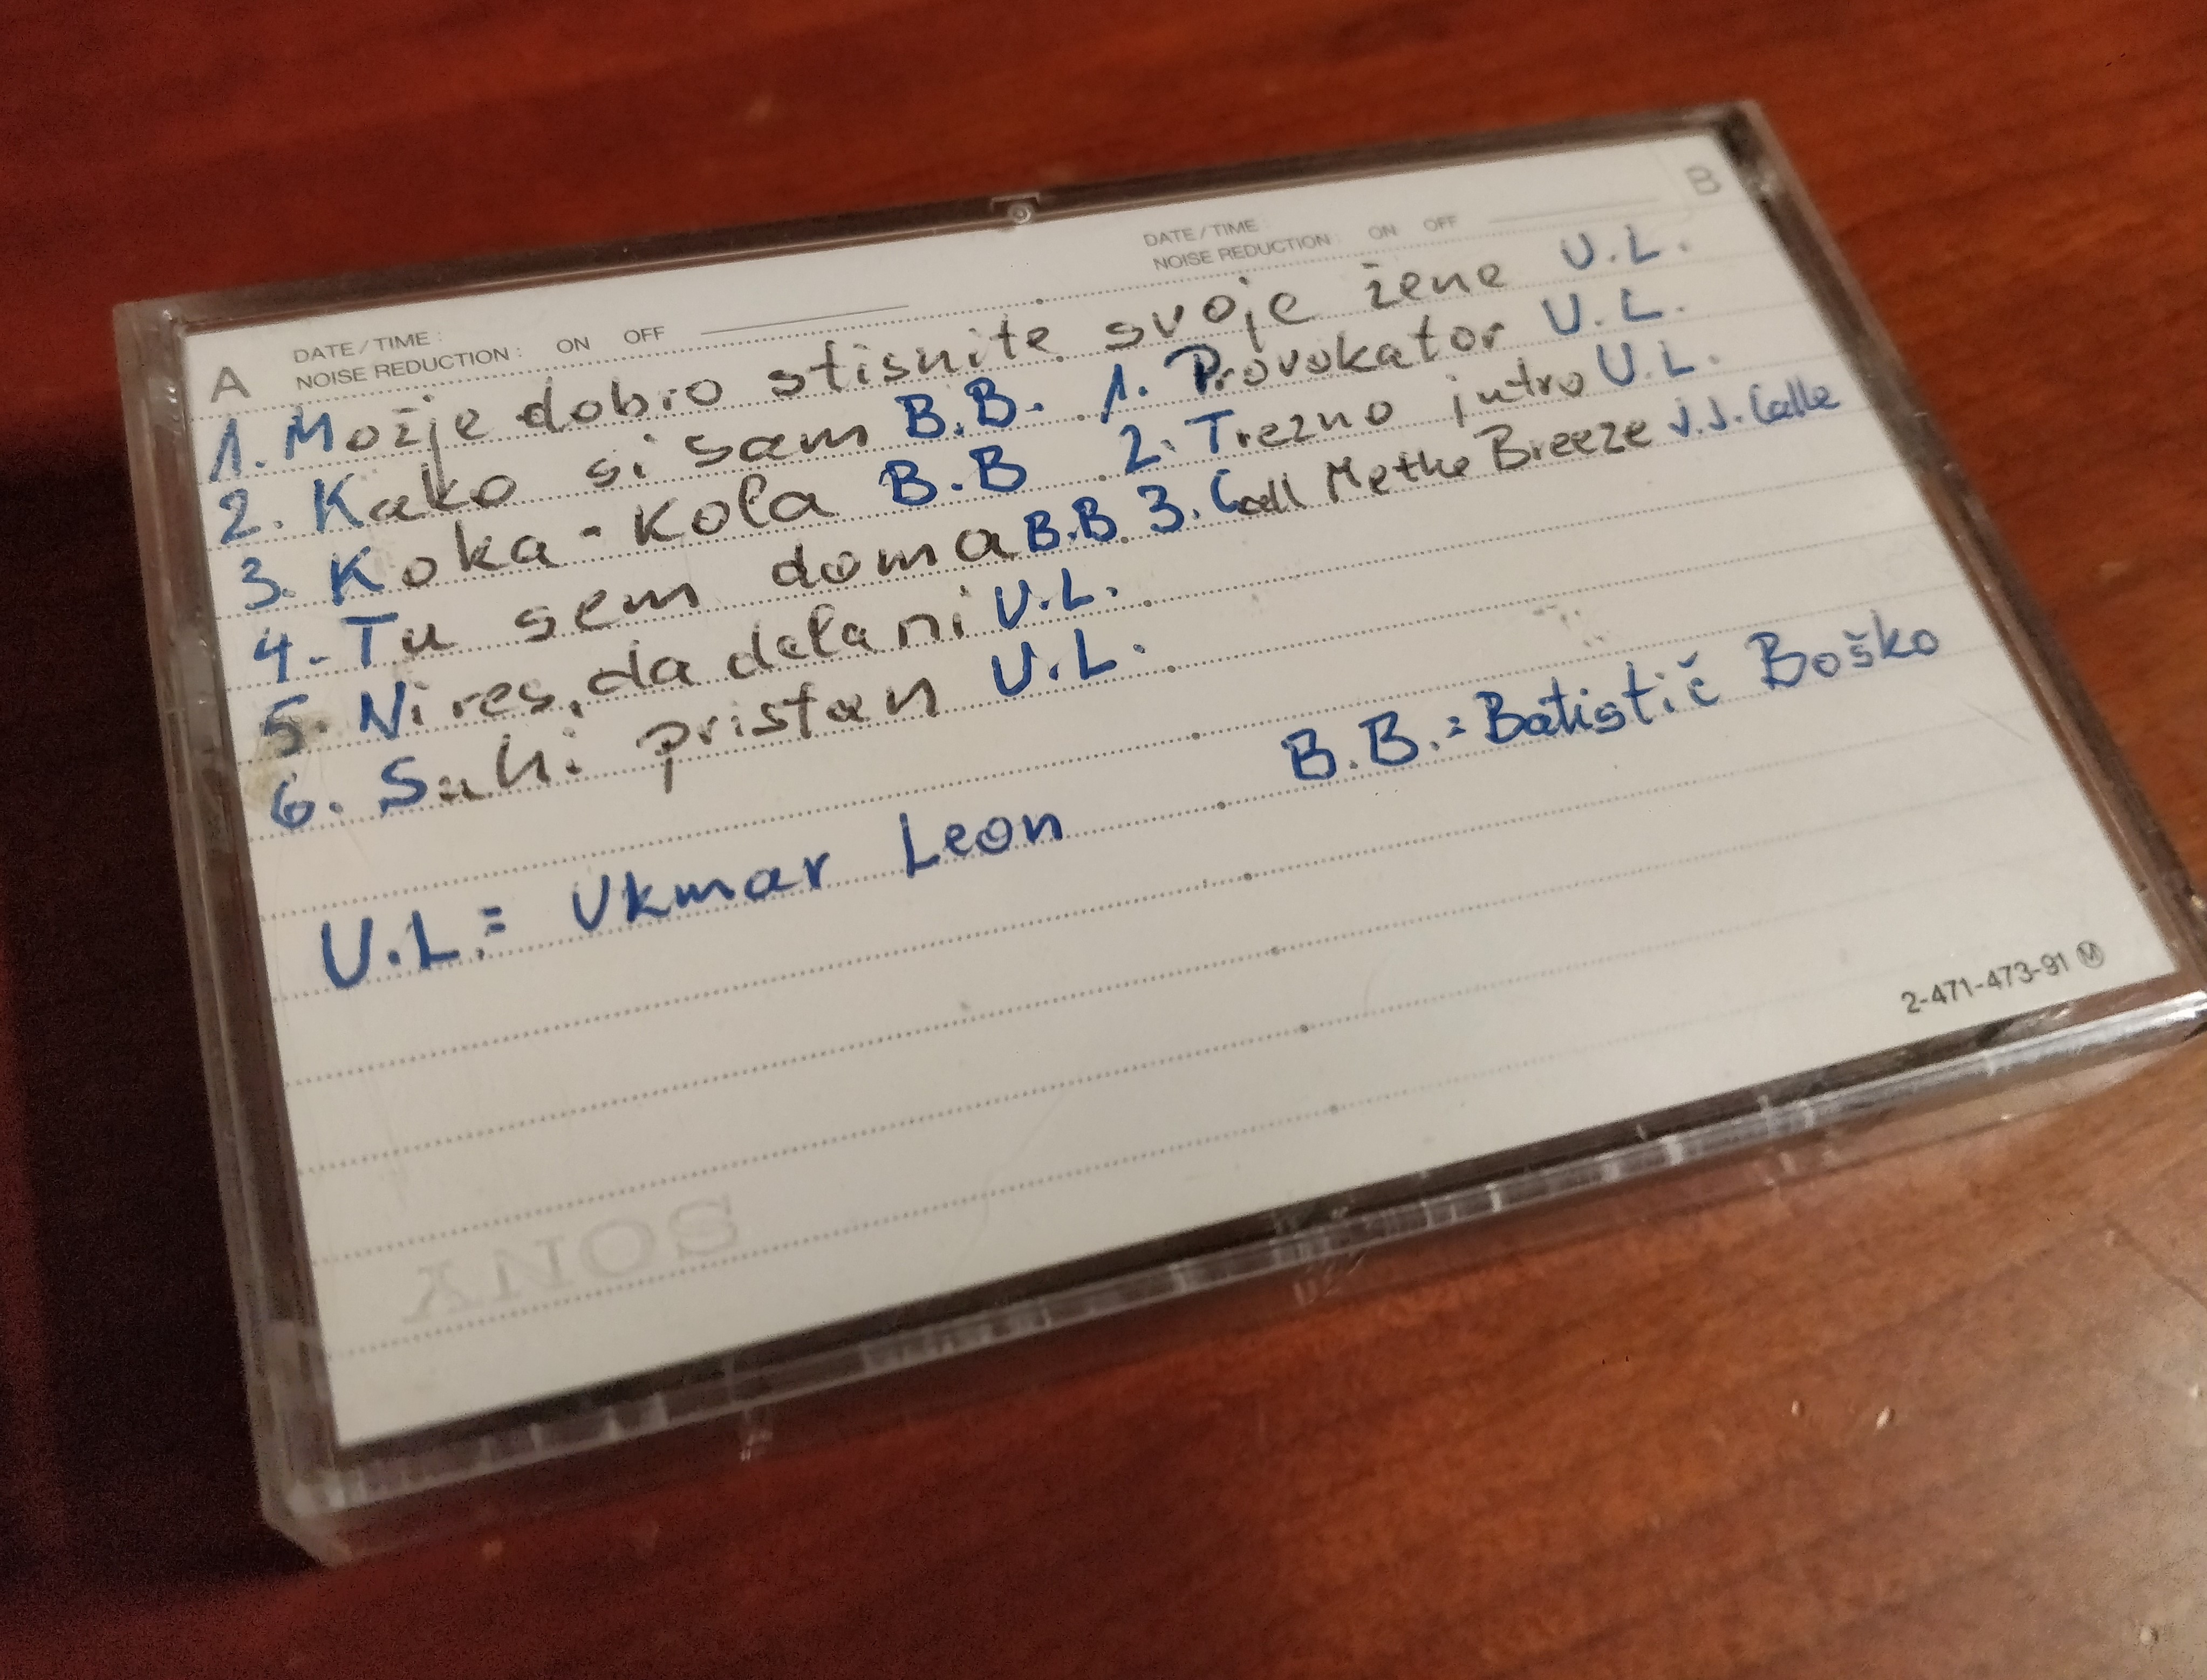 A DATE/TIME: NOISE REDUCTION: ON OFF
DATE/TIME NOISE REDUCTION: ON OFF B
1. Možje dobro stisnite svoje žene U.L.
2. Kako si sam B.B.
3. Koka-Kola B.B
4. Tu sem doma B.B
5. Ni res, da dela ni U.L.
6. Suhi pristan U.L.
1. Provokator U.L.
2. Trezno jutro U.L.
3. Call Methe Breeze J.J. Calle
U.L.= Ukmar Leon
B.B.= Batistič Boško
2-471-473-91 M
SONY